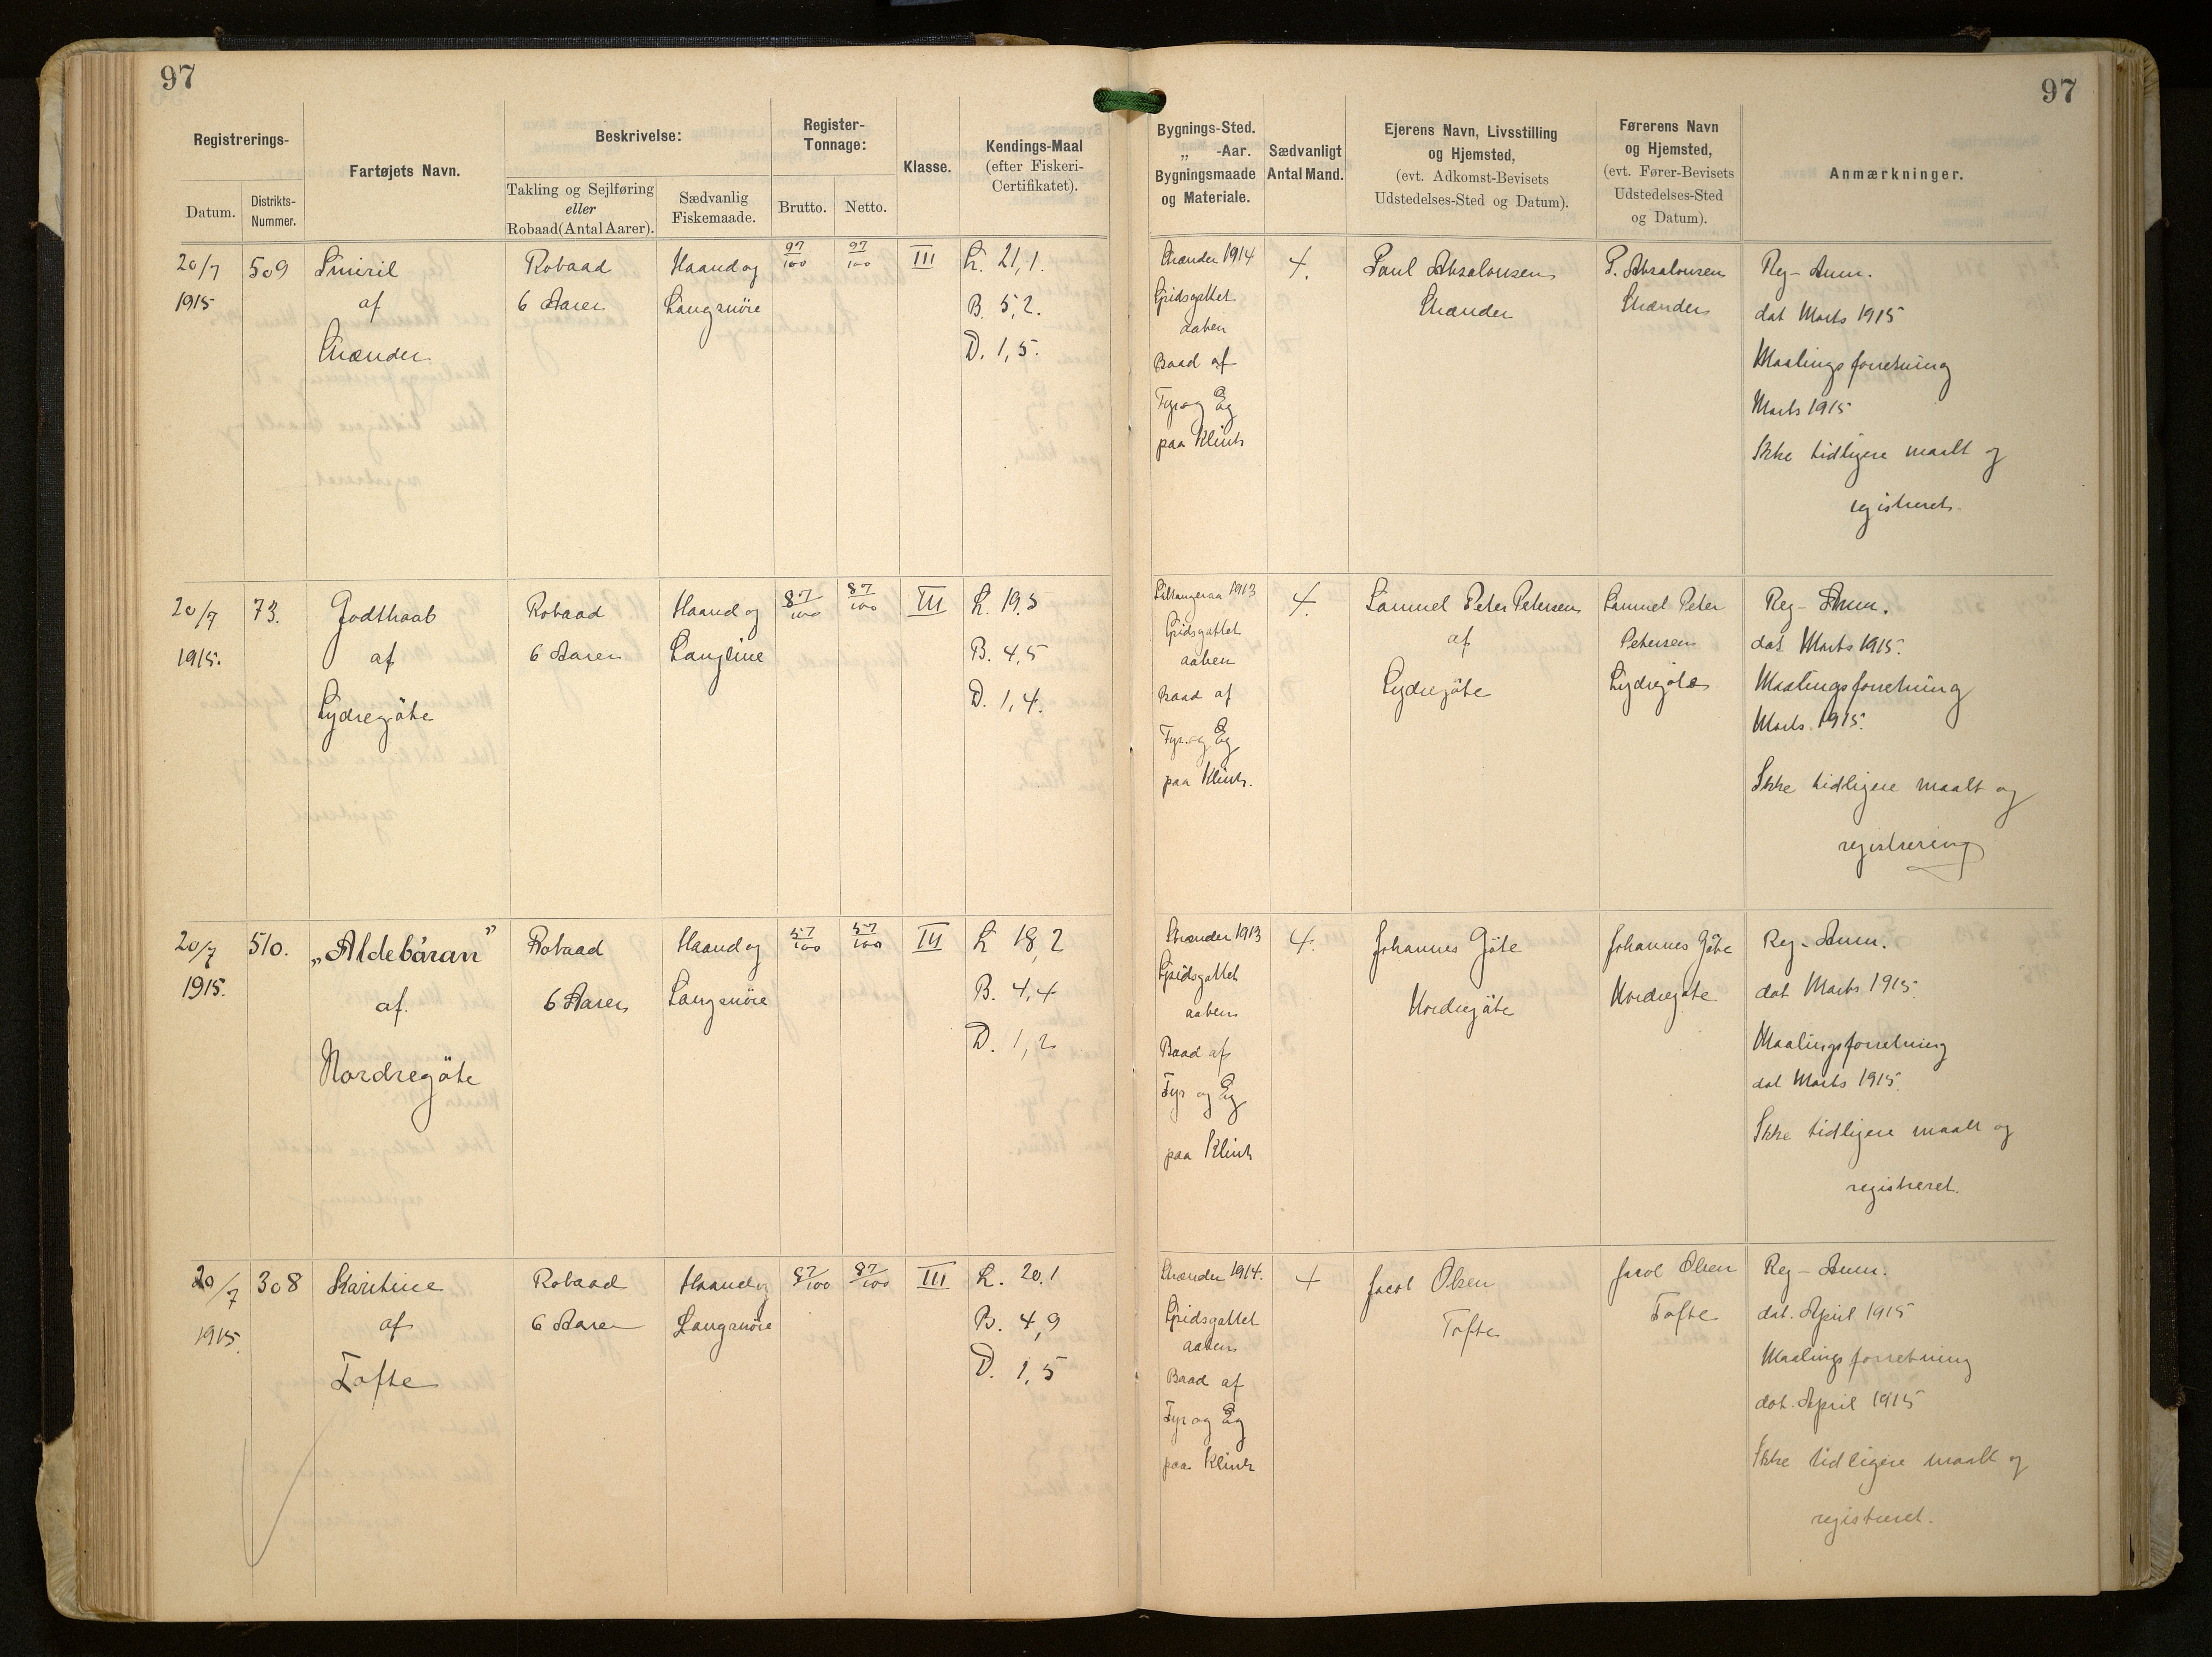 97
97
Registrerings-
Datum.
Distrikts-
Nummer.
Fartøjets Navn.
Beskrivelse:
Takling og Sejlføring
eller
Robaad (Antal Aarer).
Sædvanlig
Fiskemaade.
Register-
Tonnage:
Brutto.
Netto.
Klasse.
Kendings-Maal
(efter Fiskeri-
Certifikatet).
Bygnings-Sted.
„ -Aar.
Bygningsmaade
og Materiale.
Sædvanligt
Antal Mand.
Ejerens Navn, Livsstilling
og Hjemsted,
(evt. Adkomst-Bevisets
Udstedelses-Sted og Datum).
Førerens Navn
og Hjemsted,
(evt. Fører-Bevisets
Udstedelses-Sted
og Datum).
Anmærkninger.
20/7
1915
509
Smiril
af
Strænder
Robaad
6 Aarer
Haand og
Langsnöre
97/100
97/100
III
L. 21,1.
B. 5,2.
D. 1,5.
Strænder 1914
Spidsgattet
aaben
Baad af
Fyr og Eg
paa Klink
4.
Poul Absalonsen
Strænder
P. Absalonsen
Strænder
Reg-Anm.
dat Marts 1915
Maalingsforretning
Marts 1915
Ikke tidligere maalt og
registreret.
20/7
1915.
73.
Godthaab
af
Sydregöte
Robaad
6 Aarer
Haand og
Langline
87/100
87/100
III
L. 19,5
B. 4,5
D. 1,4.
1913
Spidsgattet
aaben
Baad af
Fyr og Eg
paa Klink.
4.
Samuel Peter Petersen
af
Sydregöte
Samuel Peter
Petersen
Sydregöte
Reg-Anm.
dat Marts 1915.
Maalingsforretning
Marts. 1915.
Ikke tidligere maalt og
registrering
20/7
1915.
510.
„Aldebaran”
af.
Nordregöte
Robaad
6 Aarer
Haand og
Langsnöre
57/100
57/100
III
L 18,2
B. 4,4
D. 1,2
Strænder 1913
Spidsgattet
aaben
Baad af
Fyr og Eg
paa Klink
4.
Johannes Göte
Nordregöte
Johannes Göte
Nordregöte
Reg-Anm.
dat Marts 1915.
Maalingsforretning
dat Marts 1915.
Ikke tidligere maalt og
registreret.
20/7
1915.
308
af
Tofte
Robaad
6 Aarer
Haand og
Langsnöre
87/100
87/100
III
L. 20,1
B. 4,9
D. 1,5
Strænder 1914.
Spidsgattet
aaben
Baad af
Fyr og Eg
paa Klink
4
Jacob Olsen
Tofte
Jacob Olsen
Tofte
Reg-Anm.
dat. April 1915
Maalingsforretning
dat. April 1915
Ikke tidligere maalt og
registreret.